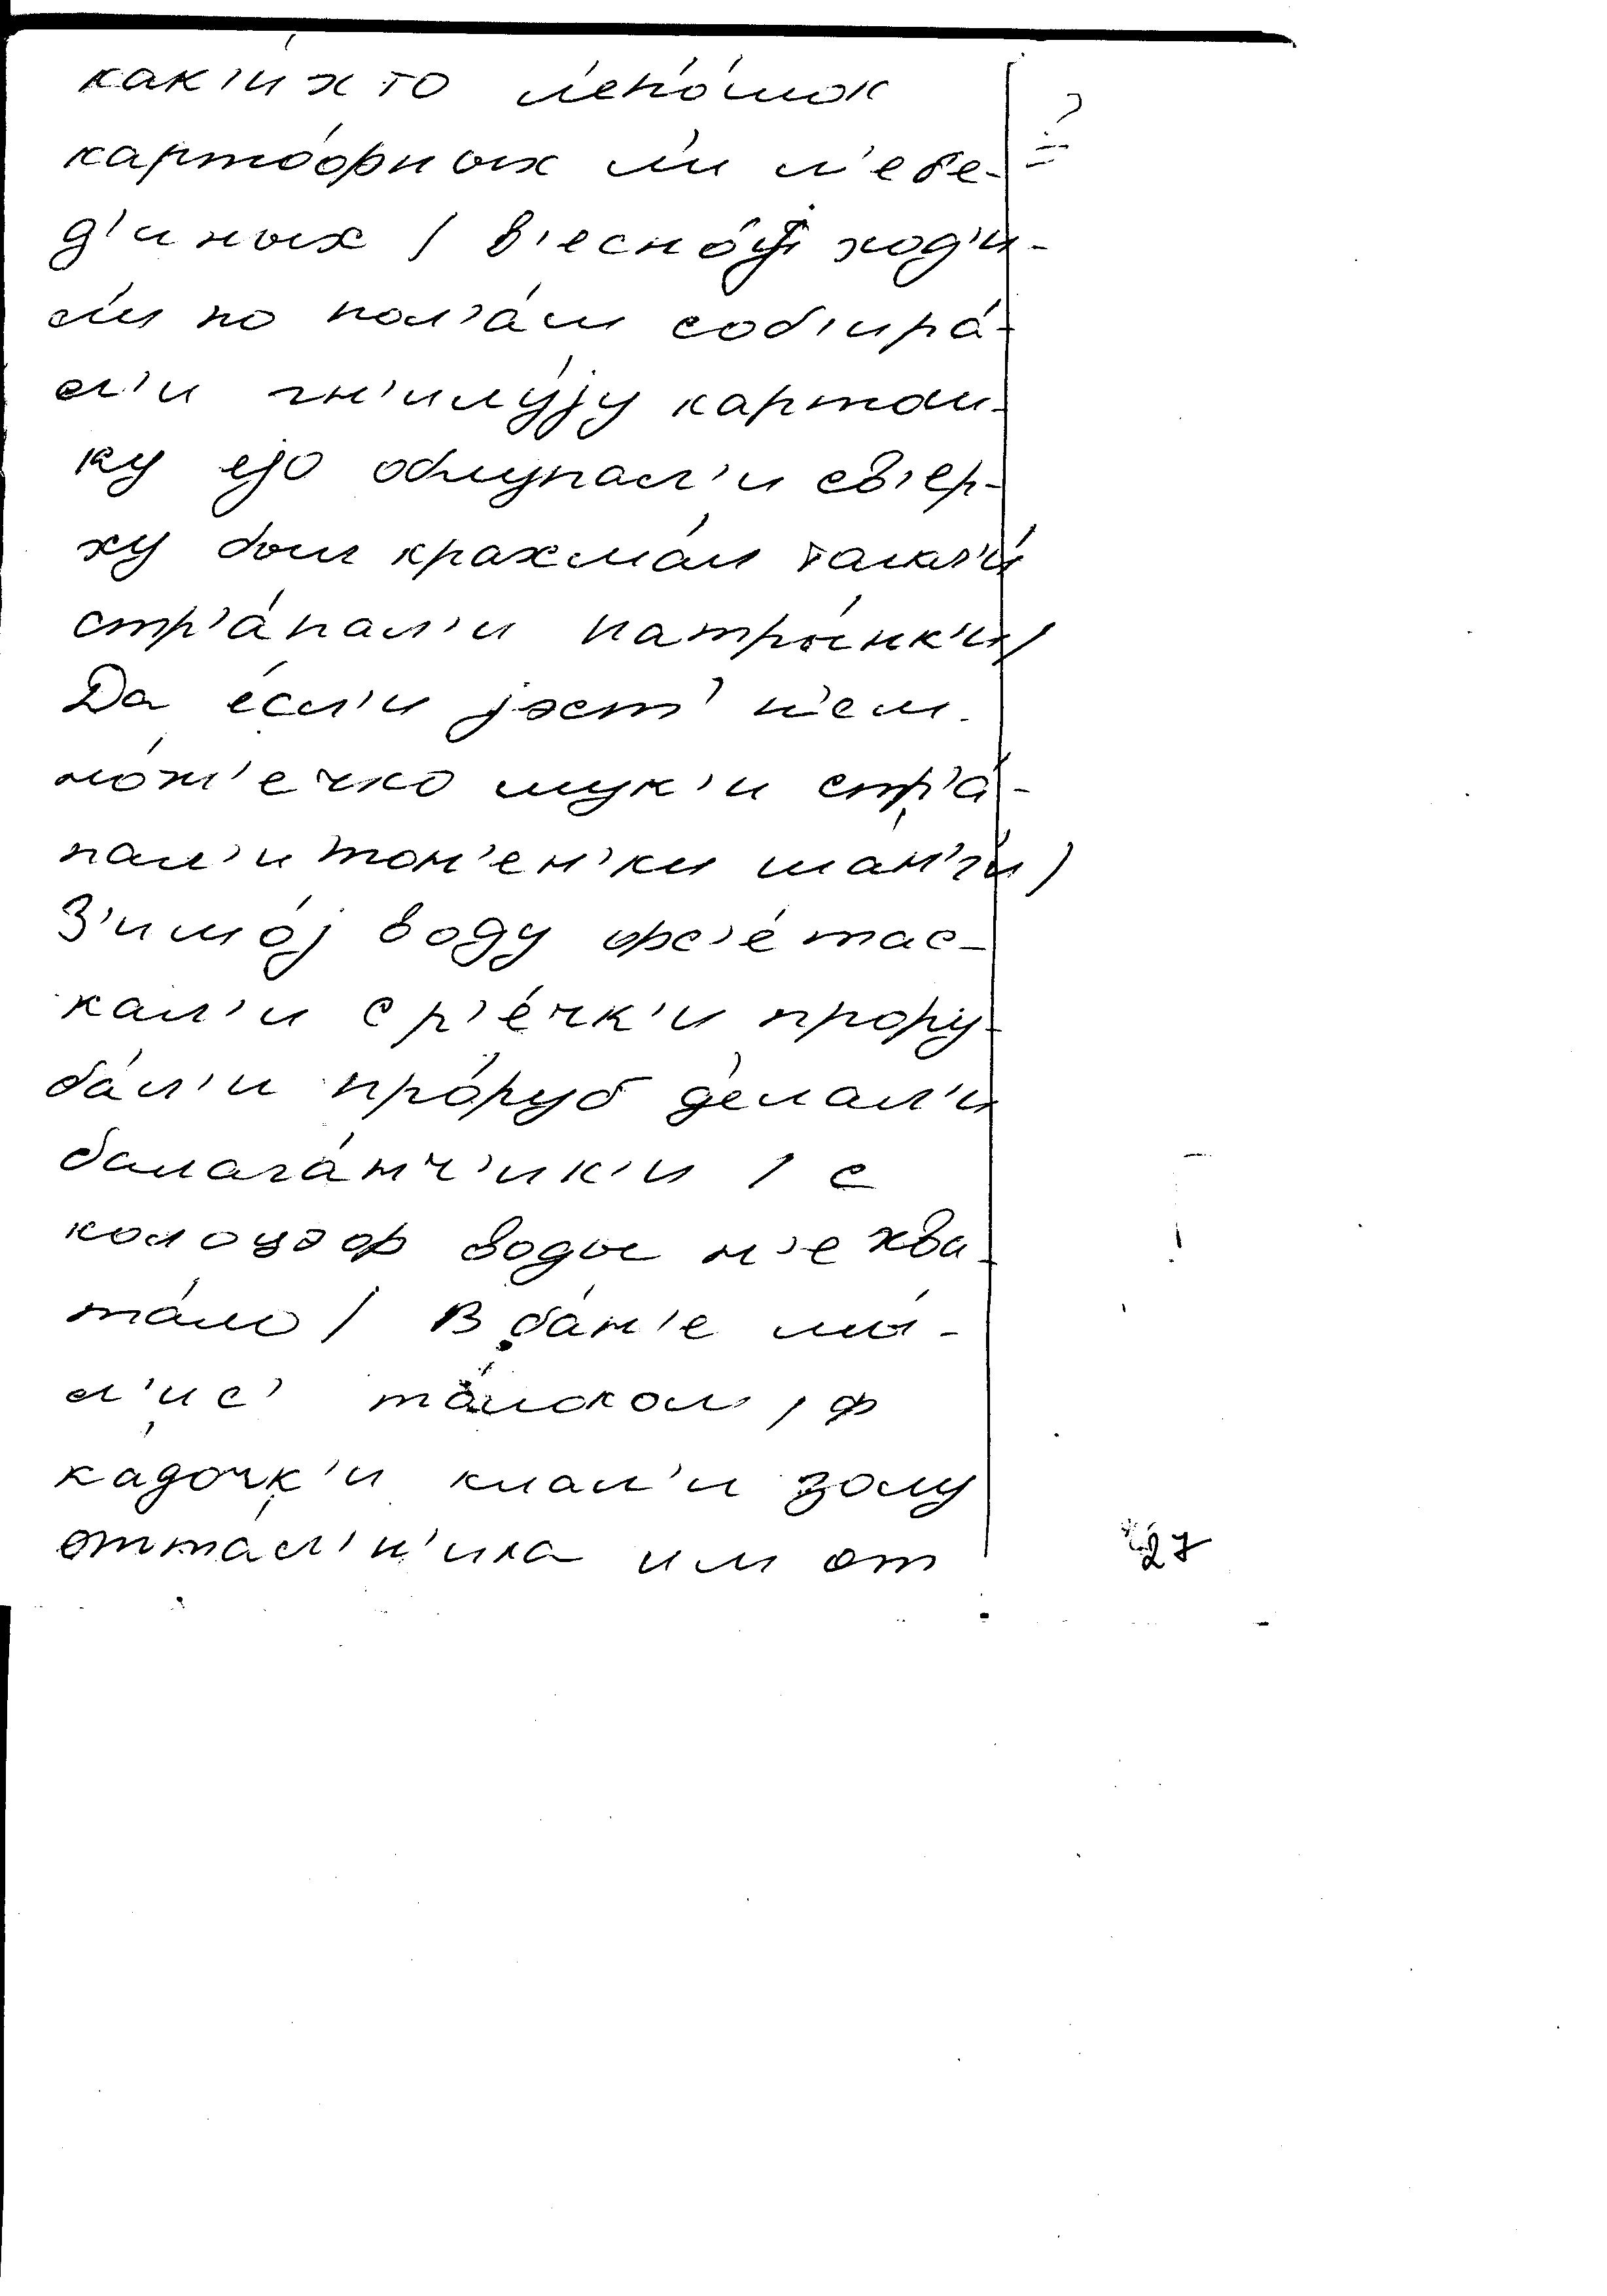 как'и́х то л'епо́шок
карто́фных л'и л'ебе-
д'иных / в'есно́j ход'и-
л'и по пол'а́м соб'ира́-
л'и гн'илу́jу картош-
ку еjо облупал'и св'ер-
ху был крахма́л
стр'а́пал'и матры́нк'и /
Да е́сл'и jэст' н'ем-
но́ж'ечко мук'и стр'а́-
пал'и тон'ен'ки ша́н'г'и /
З'имо́j воду фс'е́ тас-
кал'и с р'е́чк'и прору-
ба́л'и про́руб д'е́лал'и
балага́нч'ик'и / с
колоцэф воды н'е хва-
та́ло / В ба́н'е мы́-
л'ис' та́локом / ф
ка́дочк'и клал'и золу
отта́л'н'ика им от
27
?